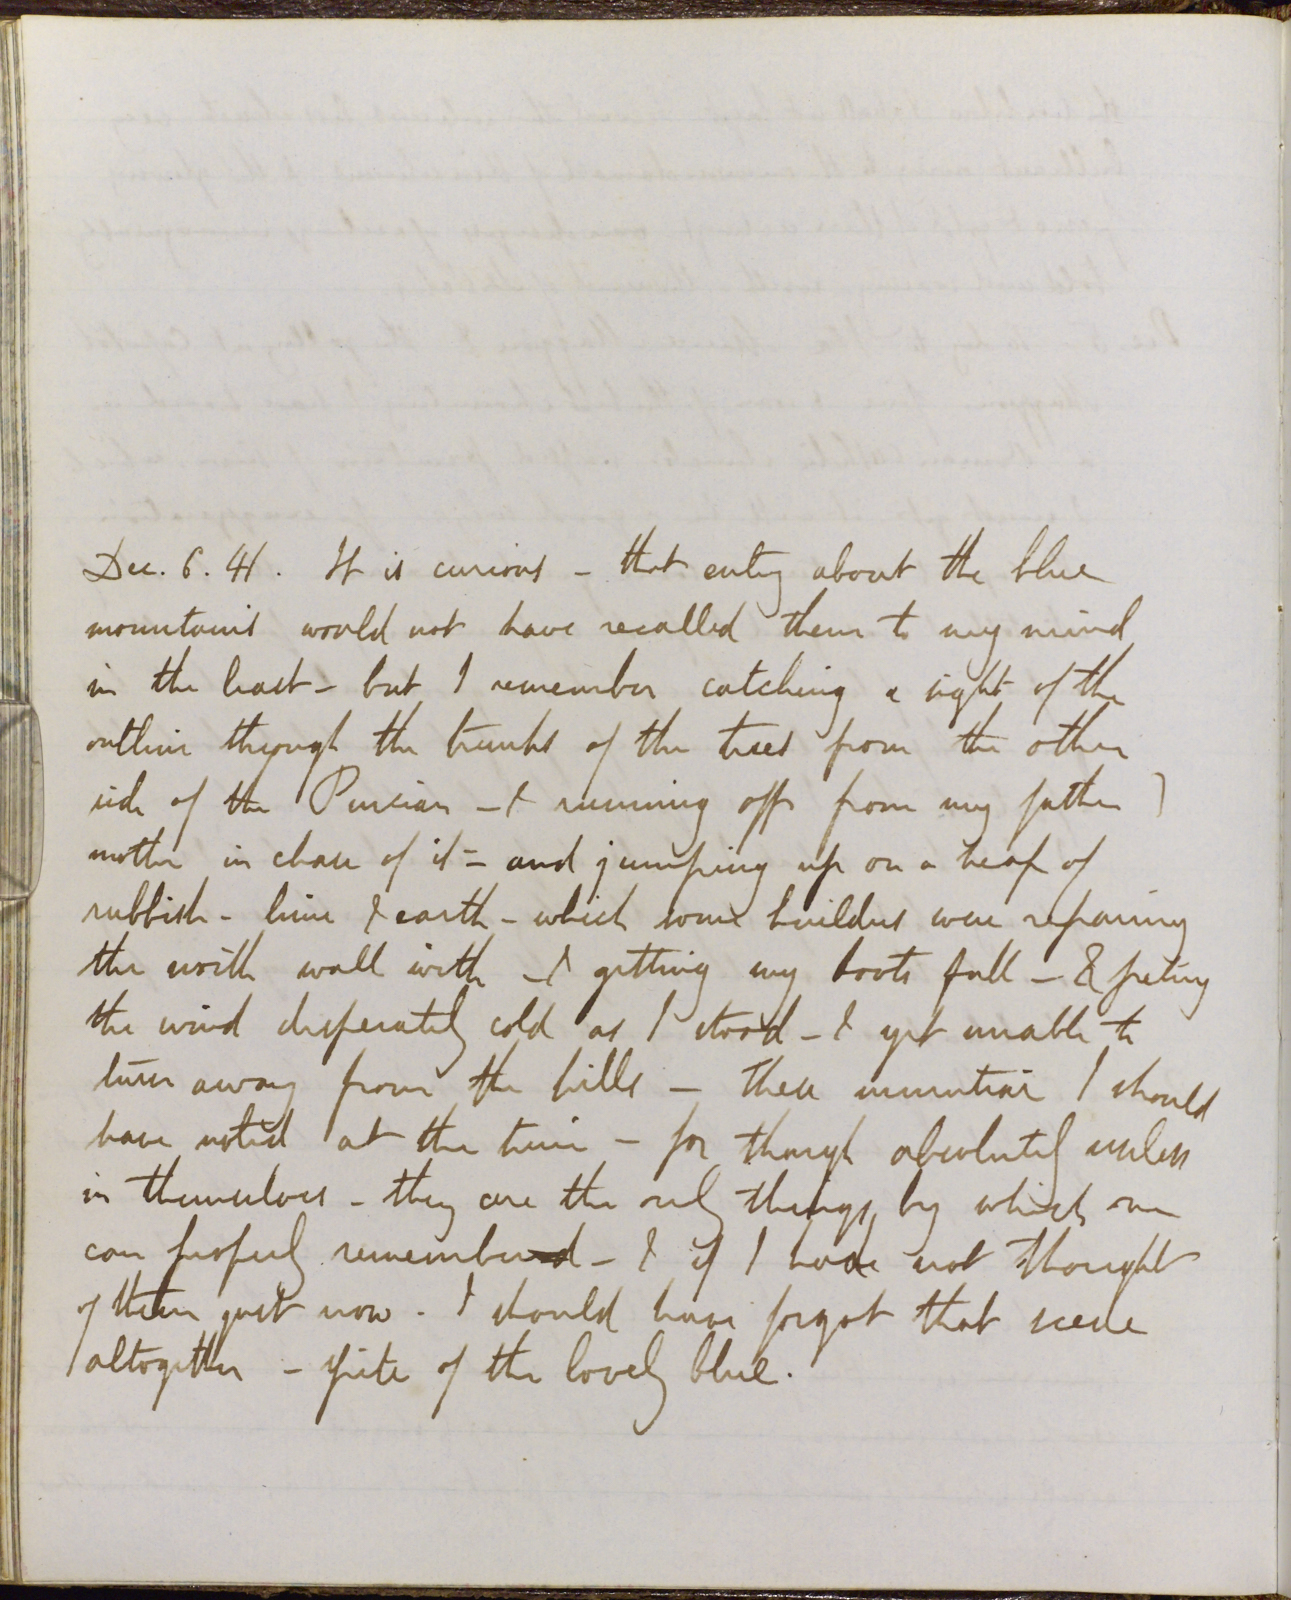 Dec. 6. 41. It is curious – that entry about the blue
mountains would not have recalled them to my mind
in the least – but I remember catching a sight of the
outline through the trunks of the trees from the other
side of the Pincian – & running off from my father &
mother in chase of it – and jumping up on a heap of
rubbish – lime & earth – which some builders were repairing
the north wall with – & getting my boots full – & feeling
the wind desperately cold as I stood – & yet unable to
turn away from the hills – These minutiae I should
have noted at the time – for though absolutely useless
in themselves – they are the only things by which one
can properly remember – & if I had not thought
of them just now – I should have forgot that scene
altogether – spite of the lovely blue.